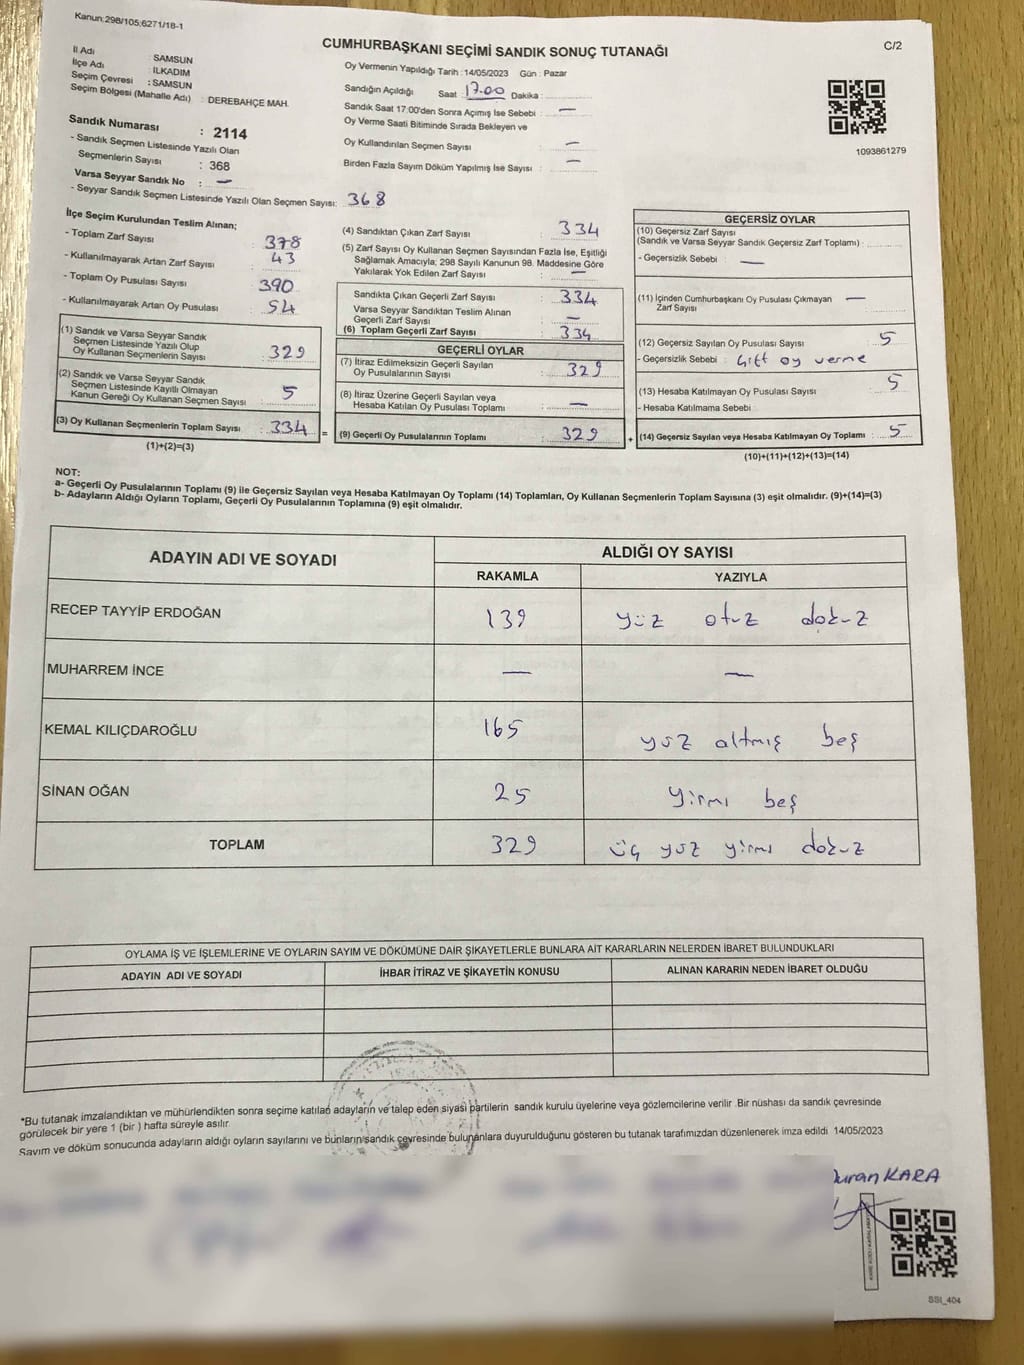 Kanun;298/105;6271/18-1
CUMHURBAŞKANI SEÇİMİ SANDIK SONUÇ TUTANAĞI
C/2
İl Adı : SAMSUN
İlçe Adı : İLKADIM
Seçim Çevresi : SAMSUN
Seçim Bölgesi (Mahalle Adı) : DEREBAHÇE MAH.
Sandık Numarası : 2114
- Sandık Seçmen Listesinde Yazılı Olan
Seçmenlerin Sayısı : 368
Varsa Seyyar Sandık No : —
- Seyyar Sandık Seçmen Listesinde Yazılı Olan Seçmen Sayısı: 368
Oy Vermenin Yapıldığı Tarih : 14/05/2023 Gün : Pazar
Sandığın Açıldığı Saat : 17.00 Dakika :
Sandık Saat 17:00'den Sonra Açımış İse Sebebi : —
Oy Verme Saati Bitiminde Sırada Bekleyen ve
Oy Kullandırılan Seçmen Sayısı : —
Birden Fazla Sayım Döküm Yapılmış İse Sayısı : —
1093861279
İlçe Seçim Kurulundan Teslim Alınan;
- Toplam Zarf Sayısı : 378
- Kullanılmayarak Artan Zarf Sayısı : 43
- Toplam Oy Pusulası Sayısı : 390
- Kullanılmayarak Artan Oy Pusulası : 54
(1) Sandık ve Varsa Seyyar Sandık
Seçmen Listesinde Yazılı Olup
Oy Kullanan Seçmenlerin Sayısı : 329
(2) Sandık ve Varsa Seyyar Sandık
Seçmen Listesinde Kayıtlı Olmayan
Kanun Gereği Oy Kullanan Seçmen Sayısı : 5
(3) Oy Kullanan Seçmenlerin Toplam Sayısı : 334 =
(1)+(2)=(3)
(4) Sandıktan Çıkan Zarf Sayısı : 334
(5) Zarf Sayısı Oy Kullanan Seçmen Sayısından Fazla İse, Eşitliği
Sağlamak Amacıyla; 298 Sayılı Kanunun 98. Maddesine Göre
Yakılarak Yok Edilen Zarf Sayısı : —
Sandıkta Çıkan Geçerli Zarf Sayısı : 334
Varsa Seyyar Sandıktan Teslim Alınan
Geçerli Zarf Sayısı : —
(6) Toplam Geçerli Zarf Sayısı : 334
GEÇERLİ OYLAR
(7) İtiraz Edilmeksizin Geçerli Sayılan
Oy Pusulalarının Sayısı : 329
(8) İtiraz Üzerine Geçerli Sayılan veya
Hesaba Katılan Oy Pusulası Toplamı : —
(9) Geçerli Oy Pusulalarının Toplamı : 329 +
GEÇERSİZ OYLAR
(10) Geçersiz Zarf Sayısı
(Sandık ve Varsa Seyyar Sandık Geçersiz Zarf Toplamı) :
- Geçersizlik Sebebi : —
(11) İçinden Cumhurbaşkanı Oy Pusulası Çıkmayan —
Zarf Sayısı
(12) Geçersiz Sayılan Oy Pusulası Sayısı : 5
- Geçersizlik Sebebi : Çift oy verme
(13) Hesaba Katılmayan Oy Pusulası Sayısı : 5
- Hesaba Katılmama Sebebi
(14) Geçersiz Sayılan veya Hesaba Katılmayan Oy Toplamı : 5
(10)+(11)+(12)+(13)=(14)
NOT:
a- Geçerli Oy Pusulalarının Toplamı (9) ile Geçersiz Sayılan veya Hesaba Katılmayan Oy Toplamı (14) Toplamları, Oy Kullanan Seçmenlerin Toplam Sayısına (3) eşit olmalıdır. (9)+(14)=(3)
b- Adayların Aldığı Oyların Toplamı, Geçerli Oy Pusulalarının Toplamına (9) eşit olmalıdır.
ADAYIN ADI VE SOYADI ALDIĞI OY SAYISI
RAKAMLA YAZIYLA
RECEP TAYYİP ERDOĞAN 139 yüz otuz dokuz
MUHARREM İNCE — —
KEMAL KILIÇDAROĞLU 165 yüz altmış beş
SİNAN OĞAN 25 yirmi beş
TOPLAM 329 üç yüz yirmi dokuz
OYLAMA İŞ VE İŞLEMLERİNE VE OYLARIN SAYIM VE DÖKÜMÜNE DAİR ŞİKAYETLERLE BUNLARA AİT KARARLARIN NELERDEN İBARET BULUNDUKLARI
ADAYIN ADI VE SOYADI İHBAR İTİRAZ VE ŞİKAYETİN KONUSU ALINAN KARARIN NEDEN İBARET OLDUĞU
*Bu tutanak imzalandıktan ve mühürlendikten sonra seçime katılan adayların ve talep eden siyasi partilerin sandık kurulu üyelerine veya gözlemcilerine verilir .Bir nüshası da sandık çevresinde
görülecek bir yere 1 (bir ) hafta süreyle asılır.
Sayım ve döküm sonucunda adayların aldığı oyların sayılarını ve bunların sandık çevresinde bulunanlara duyurulduğunu gösteren bu tutanak tarafımızdan düzenlenerek imza edildi 14/05/2023
Duran KARA
SSI_404